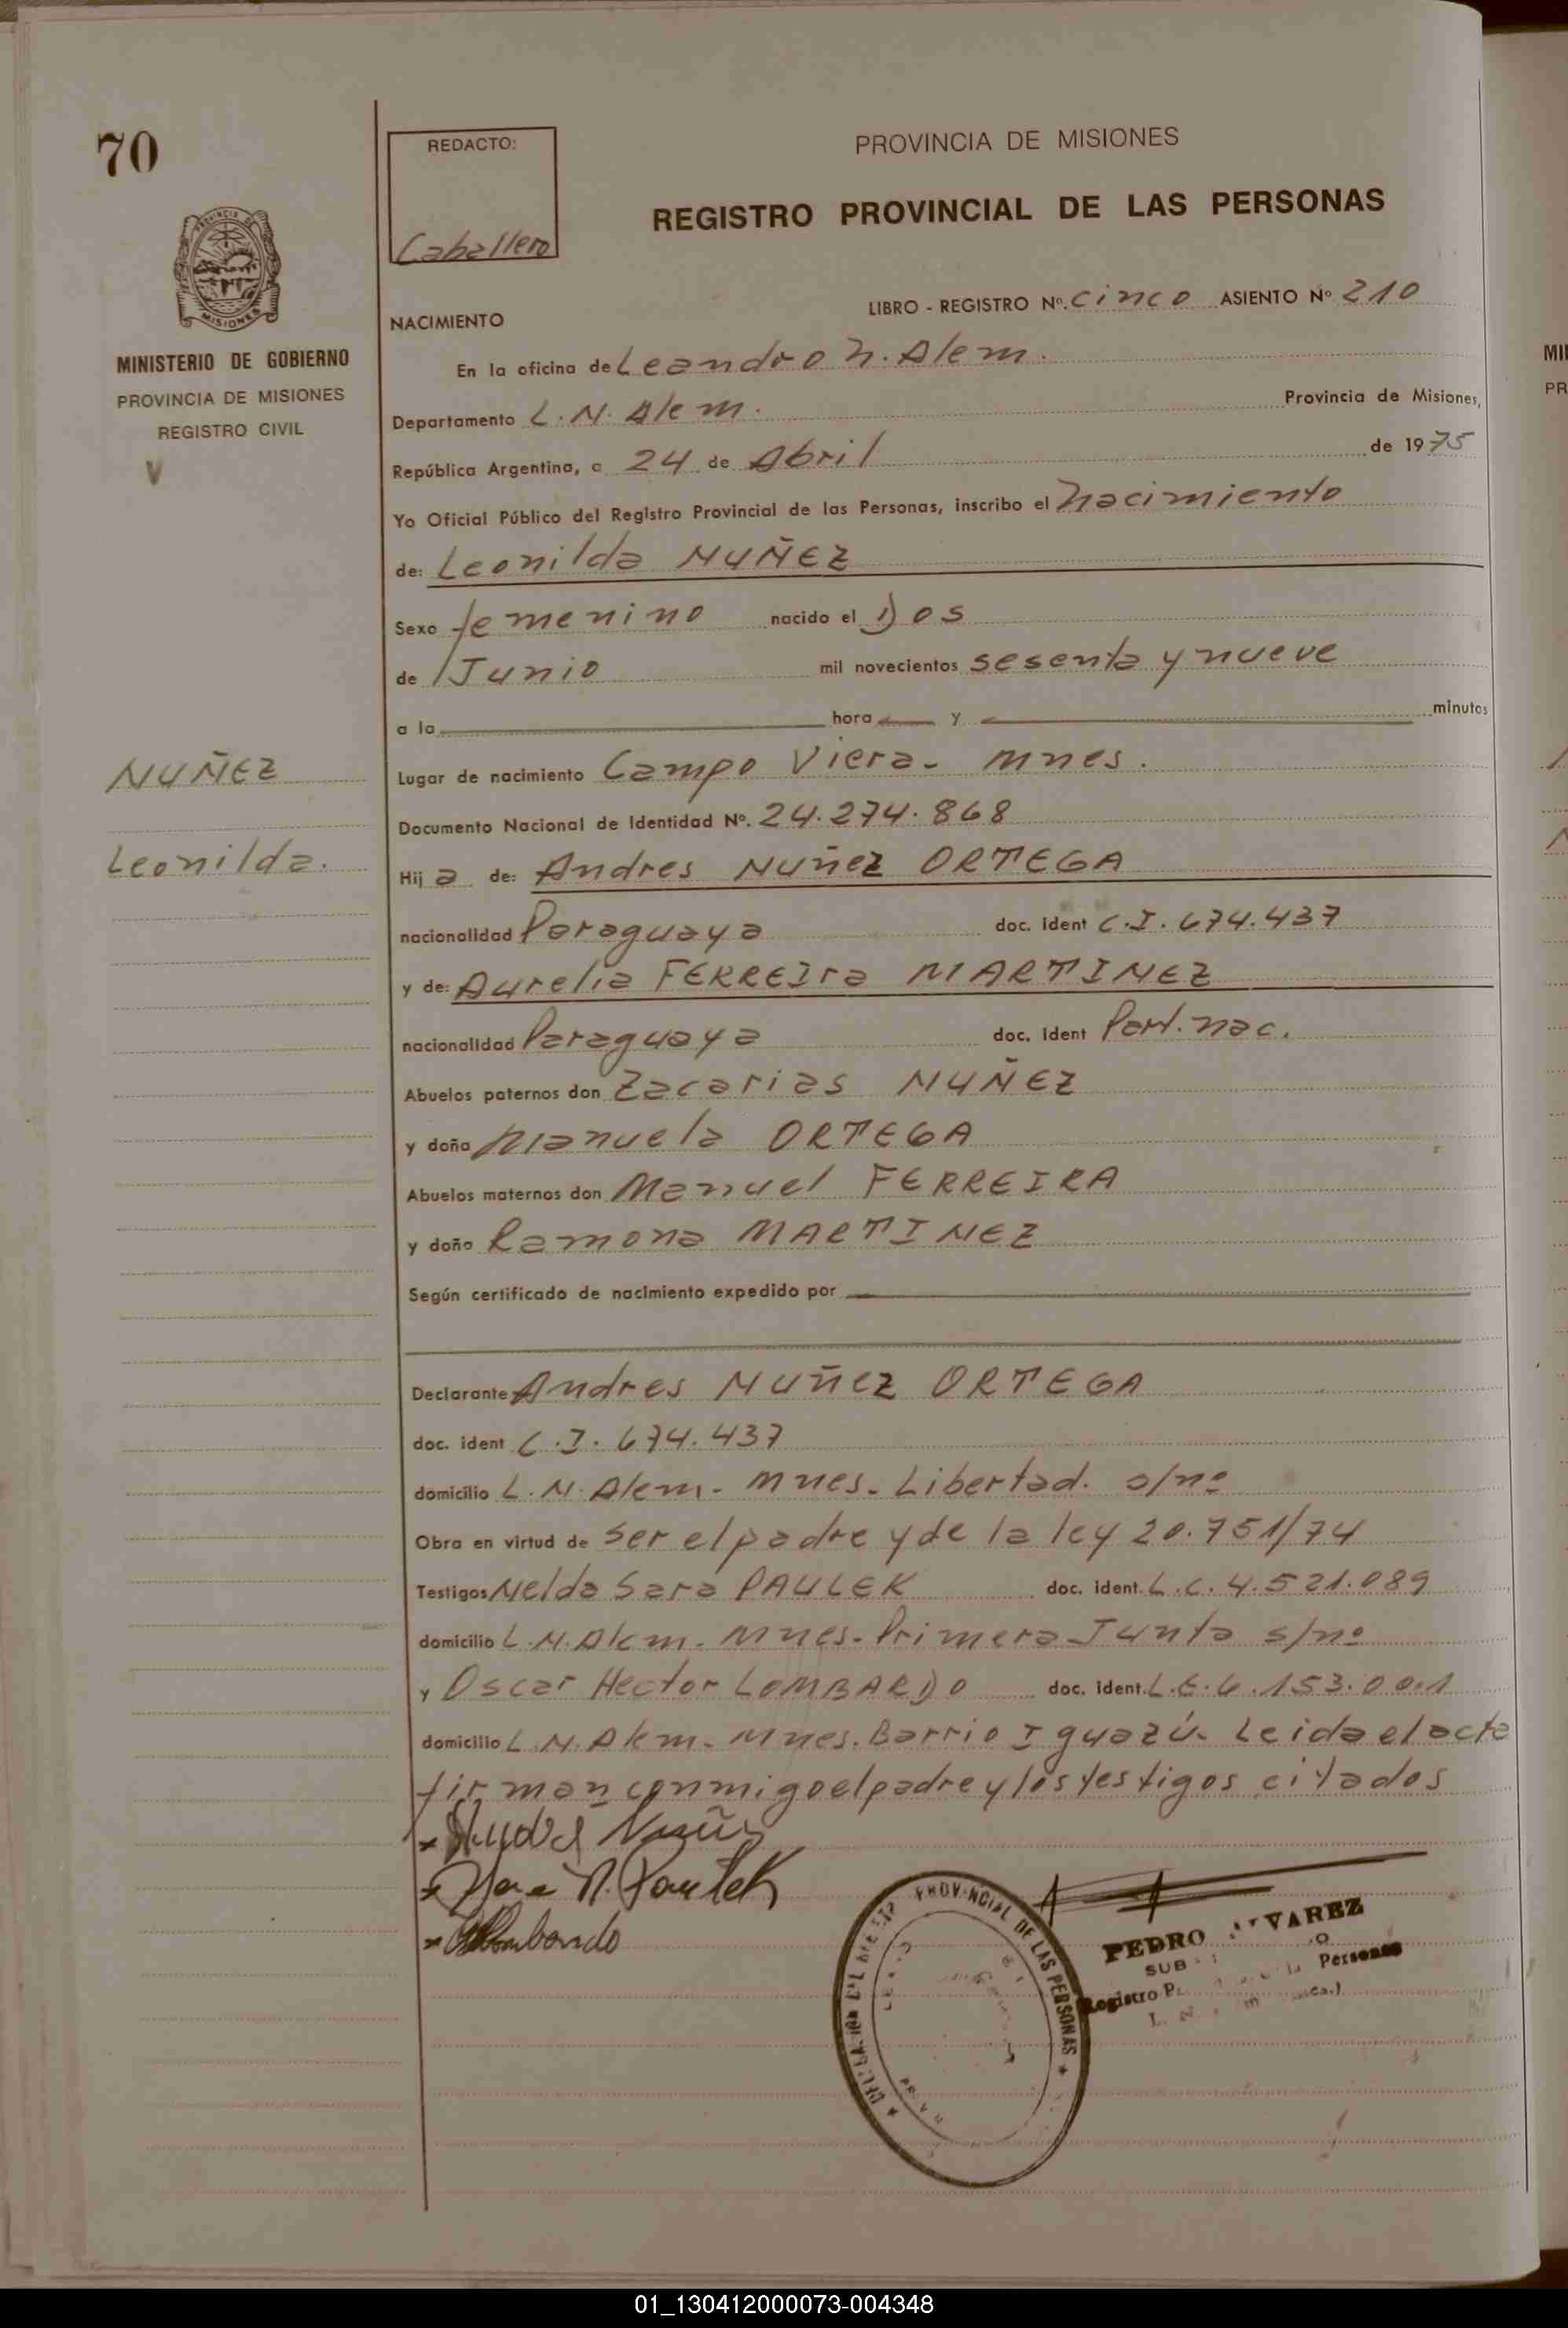 70
REDACTO:
Caballero
PROVINCIA DE MISIONES
REGISTRO PROVINCIAL DE LAS PERSONAS
PROVINCIA DE
MISIONES
MINISTERIO DE GOBIERNO
PROVINCIA DE MISIONES
REGISTRO CIVIL
V
LIBRO - REGISTRO Nº. cinco ASIENTO Nº 210
NACIMIENTO
En la oficina de Leandro N. Alem.
Departamento L. N. Alem. Provincia de Misiones,
República Argentina, a 24 de Abril de 1975
Yo Oficial Público del Registro Provincial de las Personas, inscribo el nacimiento
de: Leonilda NUÑEZ
Sexo femenino nacido el Dos
de Junio mil novecientos sesenta y nueve
a la hora y minutos
NUÑEZ
Leonilda.
Lugar de nacimiento Campo Viera - Mnes.
Documento Nacional de Identidad Nº. 24.274.868
Hija de: Andres Nuñez ORTEGA
nacionalidad Paraguaya doc. ident C.I. 674.437
y de: Aurelia FERREIra MARTINEZ
nacionalidad Paraguaya doc. ident Part. nac.
Abuelos paternos don Zacarias NUÑEZ
y doña Manuela ORTEGA
Abuelos maternos don Manuel FERREIRA
y doña Ramona MARTINEZ
Según certificado de nacimiento expedido por
Declarante Andres Nuñez ORTEGA
doc. ident C.I. 674.437
domicilio L. N. Alem - Mnes - Libertad. s/nº
Obra en virtud de ser el padre y de la ley 20.751/74
Testigos Nelda Sara PAULEK doc. ident. L.C. 4.521.089
domicilio L. N. Alem - Mnes - Primera Junta s/nº
y Oscar Hector LOMBARDO doc. ident. L.E. 6.153.001
domicilio L. N. Alem - Mnes. Barrio Iguazú - Leida el acta
firman conmigo el padre y los testigos citados
PROVINCIAL DE LAS PERSONAS
PEDRO
SUB
Registro Personas
MI
PR
01_130412000073-004348